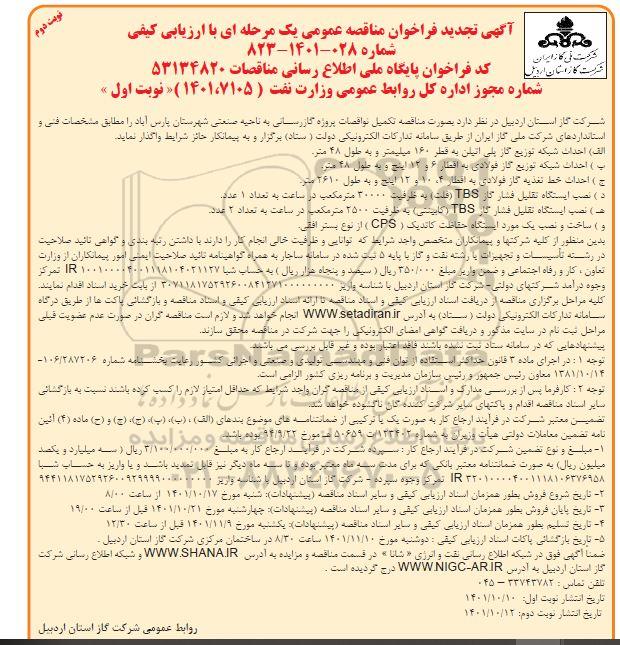 نوبت دوم
آگهی تجدید فراخوان مناقصه عمومی یک مرحله ای با ارزیابی کیفی
شماره ۰۲۸-۱۴۰۱-۸۲۳
کد فراخوان پایگاه ملی اطلاع رسانی مناقصات ۵۳۱۳۴۸۲۰
شماره مجوز اداره کل روابط عمومی وزارت نفت ( ۱۴۰۱،۷۱۰۵ )« نوبت اول »
شرکت ملی گاز ایران
شرکت گاز استان اردبیل
شرکت گاز استان اردبیل در نظر دارد بصورت مناقصه تکمیل نواقصات پروژه گازرسانی به ناحیه صنعتی شهرستان پارس آباد را مطابق مشخصات فنی و
استانداردهای شرکت ملی گاز ایران از طریق سامانه تدارکات الکترونیکی دولت ( ستاد) برگزار و به پیمانکار حائز شرایط واگذار نماید.
الف) احداث شبکه توزیع گاز پلی اتیلن به قطر ۱۶۰ میلیمتر و به طول ۴۸ متر.
ب ) احداث شبکه توزیع گاز فولادی به اقطار ۶ و ۱۲ اینچ و به طول ۴۸ متر.
ج ) احداث خط تغذیه گاز فولادی به اقطار ۴، ۱۰ و ۱۲ اینچ و به طول ۲۶۱۰ متر.
د ) نصب ایستگاه تقلیل فشار گاز TBS (فلت) به ظرفیت ۳۰۰۰۰ مترمکعب در ساعت به تعداد ۱ عدد.
هـ ) نصب ایستگاه تقلیل فشار گاز TBS (کابینتی) به ظرفیت ۲۵۰۰ مترمکعب در ساعت به تعداد ۲ عدد.
و ) ساخت و نصب یک مورد ایستگاه حفاظت کاتدیک ( CPS ) از نوع بستر افقی.
بدین منظور از کلیه شرکتها و پیمانکاران متخصص واجد شرایط که توانایی و ظرفیت خالی انجام کار را دارند با داشتن رتبه بندی و گواهی تائید صلاحیت
در رشته تأسیسات و تجهیزات یا رشته نفت و گاز با پایه ۵ ثبت شده در سامانه ساجار به همراه گواهینامه تائید صلاحیت ایمنی امور پیمانکاران از وزارت
تعاون ، کار و رفاه اجتماعی و ضمن واریز مبلغ ۳۵۰/۰۰۰ ریال ( سیصد و پنجاه هزار ریال ) به حساب شبا IR ۱۰۰۱۰۰۰۰۴۰۰۱۱۱۸۱۰۴۰۲۱۱۲۷ تمرکز
وجوه درآمد شرکتهای دولتی- شرکت گاز استان اردبیل با شناسه واریز از بابت خرید اسناد اقدام نمایند.
کلیه مراحل برگزاری مناقصه از دریافت اسناد ارزیابی کیفی و اسناد مناقصه تا ارائه اسناد ارزیابی کیفی و اسناد مناقصه و بازگشائی پاکت ها از طریق درگاه
سامانه تدارکات الکترونیکی دولت ( ستاد) به آدرس www.setadiran.ir انجام خواهد شد و لازم است مناقصه گران در صورت عدم عضویت قبلی
مراحل ثبت نام در سایت مذکور و دریافت گواهی امضای الکترونیکی را جهت شرکت در مناقصه محقق سازند.
پیشنهادهایی که در سامانه ستاد ثبت نشده باشند فاقد اعتبار بوده و غیر قابل بررسی می باشد.
توجه ۱ : در اجرای ماده ۳ قانون حداکثر استفاده از توان فنی و مهندسی تولیدی و صنعتی و اجرائی کشور رعایت بخشنامه شماره ۱۰۶/۲۸۷۲۰۶-
۱۳۸۱/۱۰/۱۴ معاون رئیس جمهور و رئیس سازمان مدیریت و برنامه ریزی کشور الزامی است.
توجه ۲ : کارفرما پس از بررسی مدارک و اسناد ارزیابی کیفی از مناقصه گران واجد شرایط که حداقل امتیاز لازم را کسب کرده باشند نسبت به بازگشائی
سایر اسناد مناقصه اقدام و پاکتهای سایر شرکت کننده گان ناگشوده خواهد شد.
تضمین معتبر شرکت در فرآیند ارجاع کار به صورت یک یا ترکیبی از ضمانتنامه های موضوع بندهای (الف) ، (ب)، (پ)، (ج)، (چ) و (ح) ماده (۴) آئین
نامه تضمین معاملات دولتی هیأت وزیران به شماره ۱۲۳۴۰۲/ت ۵۰۶۵۹ هـ مورخ ۹۴/۹/۲۲ بوده باشد.
۱- مبلغ و نوع تضمین شرکت در فرآیند ارجاع کار : سپرده شرکت در فرآیند ارجاع کار به مبلغ ۳/۱۰۰/۰۰۰/۰۰۰ ریال ( سه میلیارد و یکصد
میلیون ریال) به صورت ضمانتنامه معتبر بانکی که برای مدت سه ماه معتبر بوده و تا سه ماه دیگر نیز قابل تمدید باشد و یا واریز به حساب شبا
تمرکز وجوه سپرده - شرکت گاز استان اردبیل با شناسه واریز
۲- تاریخ شروع فروش بطور همزمان اسناد ارزیابی کیفی و سایر اسناد مناقصه (پیشنهادات): شنبه مورخ ۱۴۰۱/۱۰/۱۷ از ساعت ۸/۰۰
۳- تاریخ پایان فروش بطور همزمان اسناد ارزیابی کیفی و سایر اسناد مناقصه (پیشنهادات): چهارشنبه مورخ ۱۴۰۱/۱۰/۲۱ قبل از ساعت ۱۹/۰۰
۴- تاریخ تسلیم بطور همزمان اسناد ارزیابی کیفی و سایر اسناد مناقصه (پیشنهادات): یکشنبه مورخ ۱۴۰۱/۱۱/۹ قبل از ساعت ۱۲/۳۰
۵- تاریخ بازگشائی پاکات اسناد ارزیابی کیفی : دوشنبه مورخ ۱۴۰۱/۱۱/۱۰ ساعت ۸/۳۰ در ساختمان مرکزی شرکت گاز استان اردبیل .
ضمنا آگهی فوق در شبکه اطلاع رسانی نفت و انرژی « شانا » در قسمت مناقصه و مزایده به آدرس WWW.SHANA.IR و شبکه اطلاع رسانی شرکت
گاز استان اردبیل به آدرس WWW.NIGC-AR.IR درج گردیده است .
تلفن تماس : ۳۳۷۴۳۷۸۲ - ۰۴۵
تاریخ انتشار نوبت اول: ۱۴۰۱/۱۰/۱۰
تاریخ انتشار نوبت دوم: ۱۴۰۱/۱۰/۱۲
روابط عمومی شرکت گاز استان اردبیل